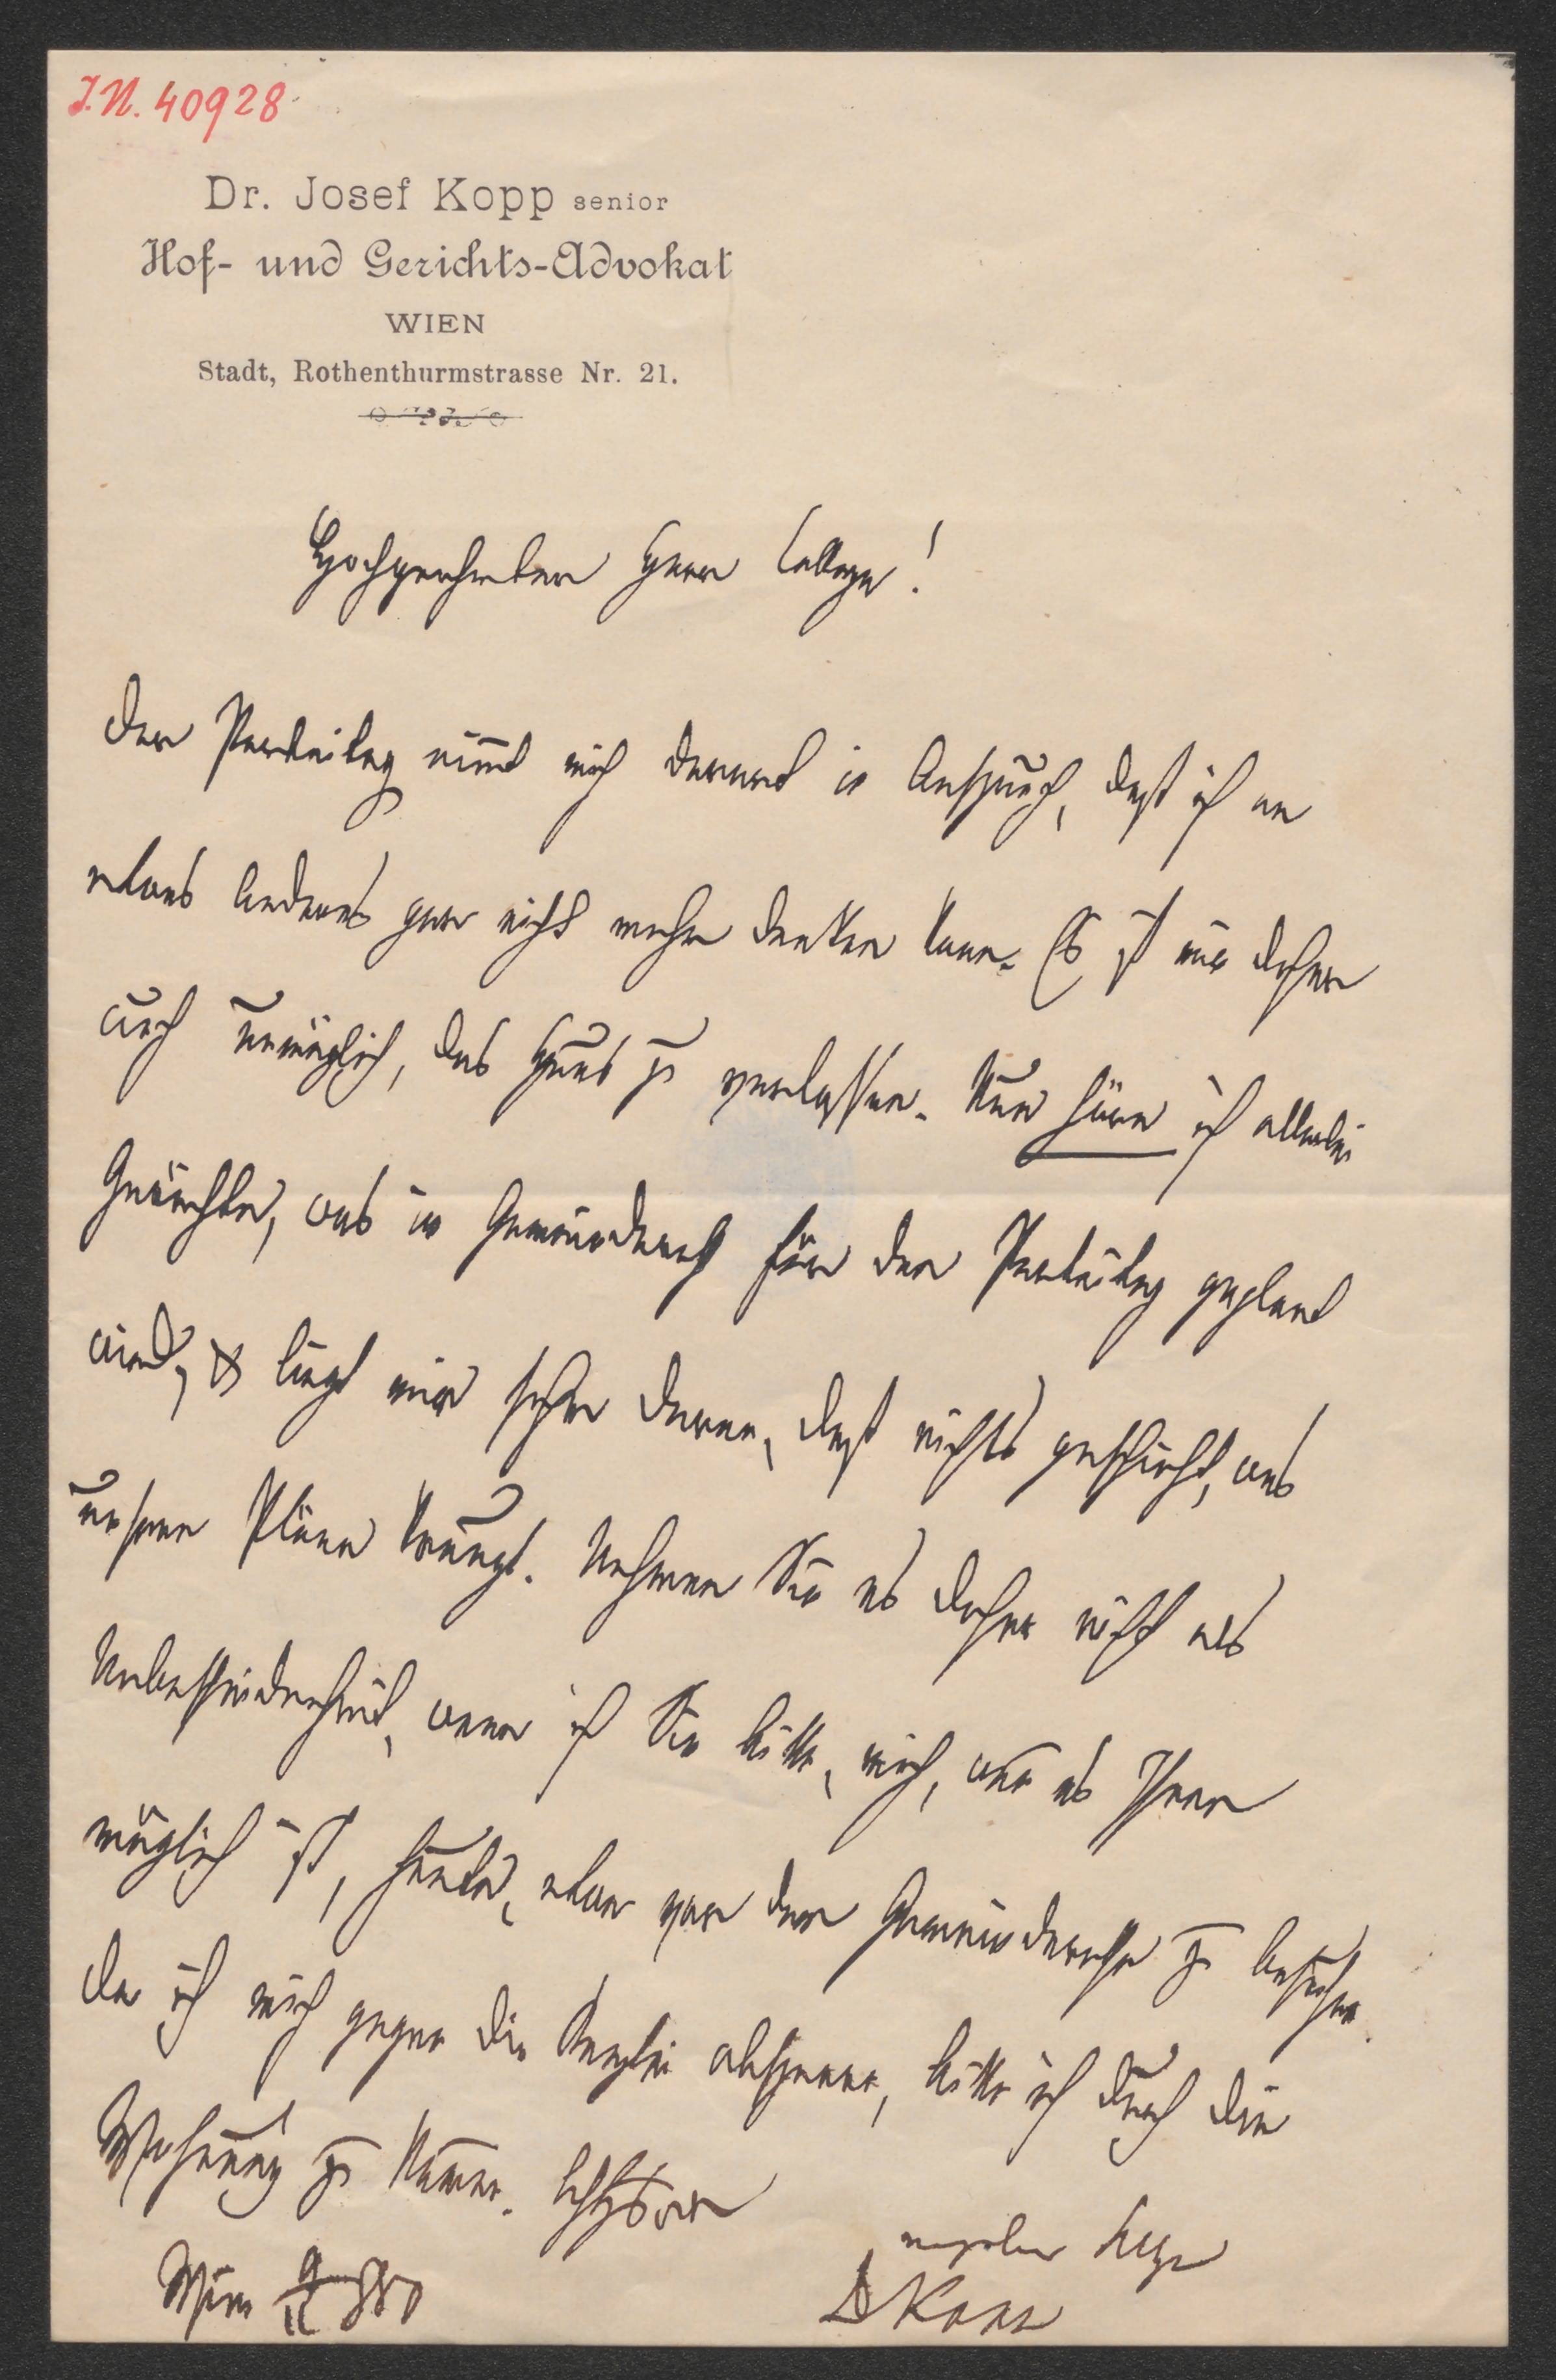 I.N. 40928
Dr. Josef Kopp senior
Hof- und Gerichts-Advokat
WIEN
Stadt, Rothenthurmstrasse Nr. 21.
Hochgeehrter Herr College!
Der Parteitag nimt mich derart in Anspruch, daß ich an
etwas Anderes gar nicht mehr denken kann. Es ist mir daher
auch unmöglich, das Haus zu verlassen. Nun höre ich allerlei
Gerüchte, was im Gemeinderath für den Parteitag geplant
wird, & liegt mir sehr daran, daß nichts geschieht, was
unsere Pläne kreuzt. Nehmen Sie es daher nicht als
Unbescheidenheit, wenn ich Sie bitte, mich, wenn es Ihnen
möglich ist, heute, etwa vor dem Gemeinderathe zu besuchen.
Da ich mich gegen die Kanzlei absperre, bitte ich durch die
Wohnung zu kommen. Achtungsvoll
ergebener College
Wien 9/11 880
Dr Kopp